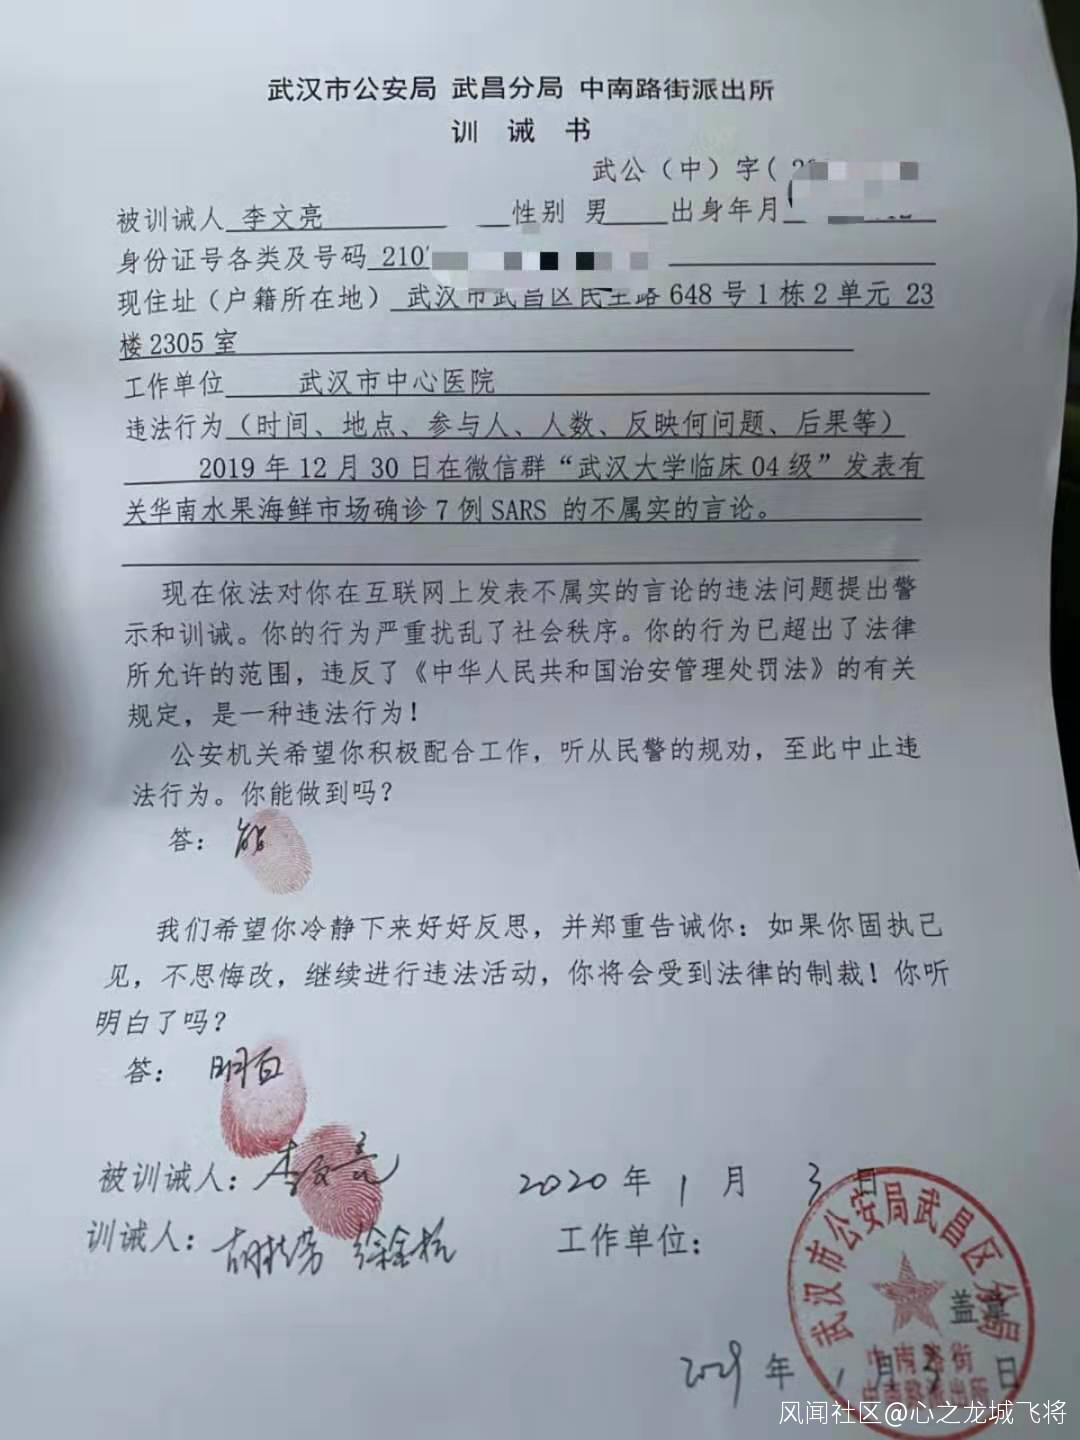 武汉市公安局 武昌分局 中南路街派出所
训 诫 书
武公（中）字(
被训诫人 李文亮 性别 男 出身年月
身份证号各类及号码 210
现住址（户籍所在地） 武汉市武昌区民主路 648 号 1 栋 2 单元 23
楼 2305 室
工作单位 武汉市中心医院
违法行为（时间、地点、参与人、人数、反映何问题、后果等）
2019 年 12 月 30 日在微信群“武汉大学临床 04 级”发表有
关华南水果海鲜市场确诊 7 例 SARS 的不属实的言论。
现在依法对你在互联网上发表不属实的言论的违法问题提出警
示和训诫。你的行为严重扰乱了社会秩序。你的行为已超出了法律
所允许的范围，违反了《中华人民共和国治安管理处罚法》的有关
规定，是一种违法行为！
公安机关希望你积极配合工作，听从民警的规劝，至此中止违
法行为。你能做到吗？
答： 能
我们希望你冷静下来好好反思，并郑重告诫你：如果你固执己
见，不思悔改，继续进行违法活动，你将会受到法律的制裁！你听
明白了吗？
答： 明白
被训诫人：李文亮 2020 年 1 月 3 日
训诫人： 胡桂芳 徐金杭 工作单位：
武汉市公安局武昌区分局
盖章
中南路街
中南路派出所
年 1 月 3 日
风闻社区@心之龙城飞将